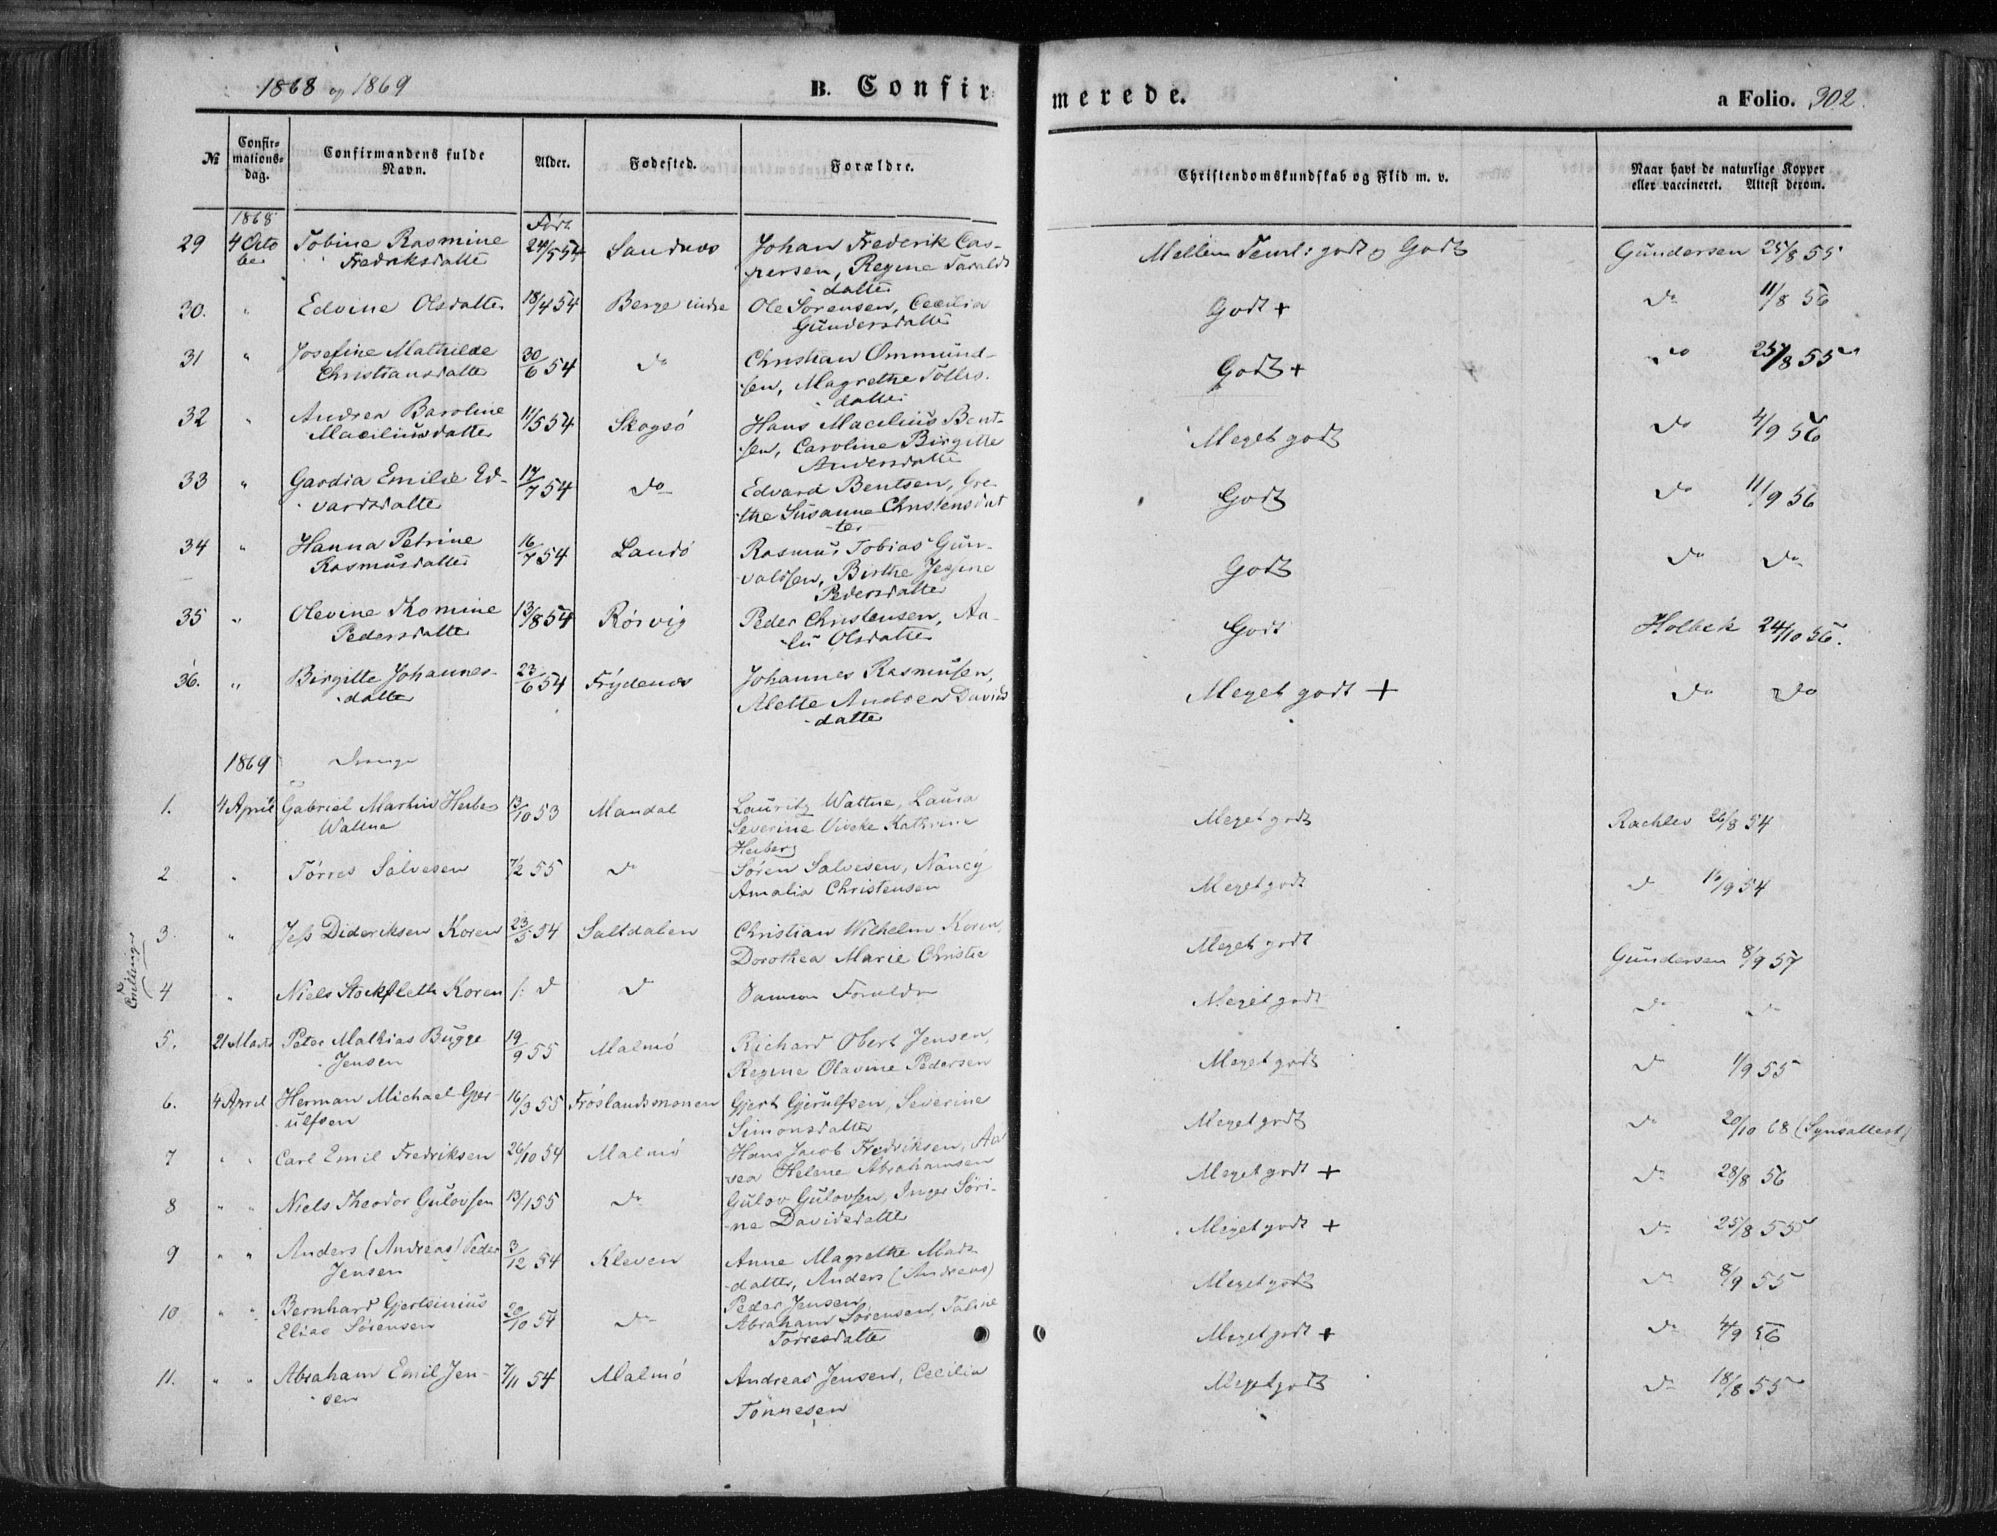 1868 og 1869
B. Confirmerede.
a Folio. 302.
№ Confirmationsdag. Confirmandens fulde Navn. Alder. Fødested. Forældre. Christendomskundskab og Flid m. v. Naar havt de naturlige Kopper eller vaccineret. Attest derom.
1868 Født
29 4 Octo Tobine Rasmine 24/5 54 Sandnæs Johan Frederik Cas- Mellem Teml: godt og Godt Gundersen 25/8 55
ber Fredriksdatter persen, Regine Taralds
datter
30. " Edvine Olsdatter 18/4 54 Berge indre Ole Sørensen, Cecilia Godt + Do 11/8 56
Gundersdatter
31 " Josefine Mathilde 30/6 54 Do Christian Ommund- Godt + Do 25/8 55
Christiansdatter sen, Magrethe Tolles.
datter
32 " Andrea Baroline 11/5 54 Skogsö Hans Macilius Bent- Meget godt Do 4/9 56
Maciliusdatter sen, Caroline Birgitte
Andersdatter
33 " Gardia Emilie Ed- 17/7 54 Do Edvard Bentsen, Gre Godt Do 11/9 56
vardsdatter the Susanne Christensdat
ter
34 " Hanna Petrine 16/7 54 Landö Rasmus Tobias Gun- Godt Do Do
Rasmusdatter valdsen, Birthe Jesine
Pedersdatter
35 " Olevine Thomine 13/8 54 Rörvig Peder Christensen, Aa- Godt Holbek 24/10 56.
Pedersdatter Olsdatter
36. " Birgitte Johannes- 23/6 54 Frydenæs Johannes Rasmusen, Meget godt + Do Do
datter Alette Andrea Davids
datter
1869 Drenge
1. 4 April Gabriel Martin Herbe 13/10 53 Mandal Lauritz Wattne, Laura Meget godt 26/8 54
Wattne Severine Viveke Kathrine
Herberg
2 " Tørres Salvesen 7/2 55 Do Søren Salvesen, Nancy Meget godt D 16/9 54
Amalia Christensen
3 " Jess Dideriksen Koren 23/5 54 Saltdalen Christian Wilhelm Koren, Meget godt Gundersen 8/9 57
Dorothea Marie Christie
Tvillinger
4 " Niels Stockfleth Koren D D Samme Forældre Meget godt D D
5. 21 Marts Peter Mathias Bugge 19/9 55 Malmö Richard Obert Jensen, Meget godt D 1/9 55
Jensen Regine Olavine Pedersen
6. 4 April Herman Michael Gjer- 16/3 55 Fröslandsmonen Gjert Gjerulfsen, Severine Meget godt D 20/10 68 (Synsattest)
ulfsen Simonsdatter
7 " " Carl Emil Fredriksen 26/10 54 Malmö Hans Jacob Fredriksen, Meget godt + D 28/8 56
Helene Abrahamsen
8 " " Niels Theodor Gulovsen 13/1 55 Do Gulov Gulovsen, Inger Söri- Meget godt + D 25/8 55
ne Davidsdatter
9 " " Anders (Andreas) Peder 3/12 54 Kleven Anne Magrethe Mads Meget godt D 8/9 55
Jensen datter, Anders (Andreas)
Peder Jensen
10 " " Bernhard Gjertsinius 20/10 54 Do Abraham Sørensen, Taline Meget godt + D 4/9 56
Elias Sørensen Torresdatter
11. " " Abraham Emil Jen- 7/11 54 Malmö Andreas Jensen, Cecilia Meget godt D 18/8 55
sen Tönnesen